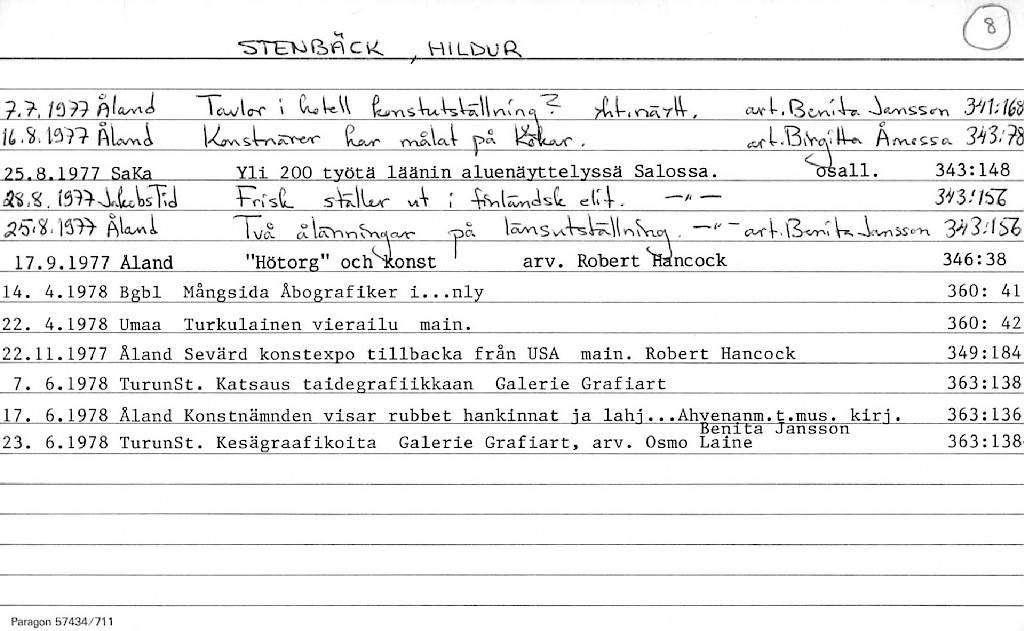 8
STENBÄCK, HILDUR
7.7.1977 Åland Tavlor i hotell konstutställning? yht.näytt. art. Benita Jansson 341:168
16.8.1977 Åland Konstnärer har målat på Kökar. art. Birgitta Åmossa 343:78
25.8.1977 SaKa Yli 200 työtä läänin aluenäyttelyssä Salossa. osall. 343:148
28.8.1977 JakobsTid Frisk ställer ut i finländsk elit. —"— 343:156
25.8.1977 Åland Två ålänningar på länsutställning. —"— art. Benita Jansson 343:156
17.9.1977 Aland "Hötorg" och konst arv. Robert Hancock 346:38
14. 4.1978 Bgbl Mångsida Åbografiker i...nly 360: 41
22. 4.1978 Umaa Turkulainen vierailu main. 360: 42
22.11.1977 Åland Sevärd konstexpo tillbacka från USA main. Robert Hancock 349:184
7. 6.1978 TurunSt. Katsaus taidegrafiikkaan Galerie Grafiart 363:138
17. 6.1978 Åland Konstnämnden visar rubbet hankinnat ja lahj...Ahvenanm.t.mus. kirj. 363:136
Benita Jansson
23. 6.1978 TurunSt. Kesägraafikoita Galerie Grafiart, arv. Osmo Laine 363:138
Paragon 57434/711